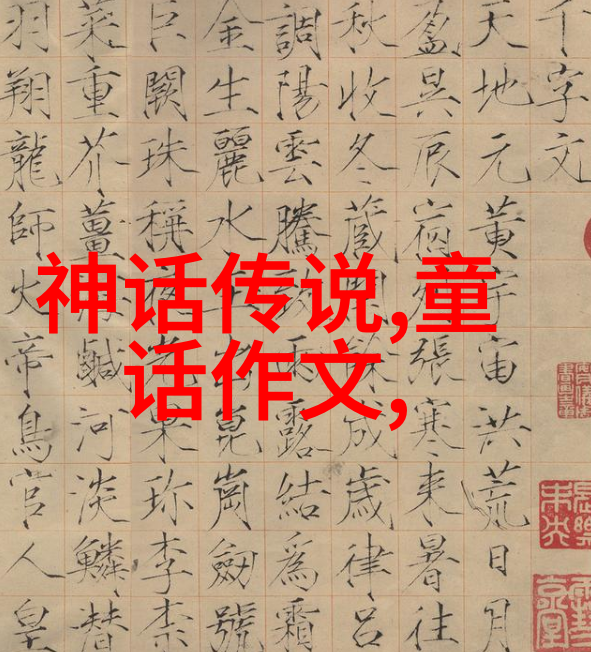 神话传说,童
话作文,
千字文
天地元黃宇宙洪荒日月
盈昃辰宿列張寒来暑往
秋收冬蔵閏餘成歲律吕
調陽雲騰致雨露結為霜
金生麗水玉出崑崗劔號
巨闕珠稱夜光果珍李柰
菜重芥薑海鹹河淡鱗潛
羽翔龍師火帝鳥官人皇